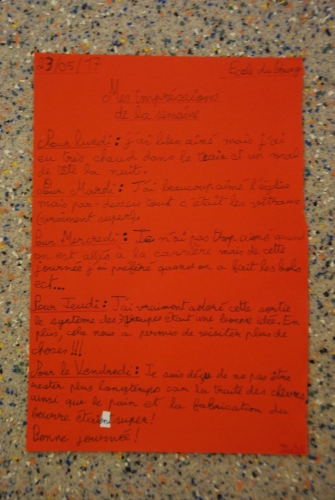 23/05/17
Ecole du bourg
Mes impressions
de la semaine
Pour lundi : J'ai bien aimé mais j'ai
eu très chaud dans le train et un mal
de tête la nuit.
Pour Mardi : J'ai beaucoup aimé l'église
mais par-dessus tout c'était les vitraux
(vraiment super).
Pour Mercredi : Je n'ai pas trop aimé quand
on est allé à la carrière mais de cette
journée j'ai préféré quand on a fait les bols
ect...
Pour Jeudi : J'ai vraiment adoré cette sortie
le système des groupes était une bonne idée. En
plus, cela nous a permis de visiter plus de
choses !!!
Pour le Vendredi : Je suis déçue de ne pas être
rester plus longtemps car la traite des chèvres
ainsi que le pain et la fabrication du
beurre étaient super!
Bonne journée !